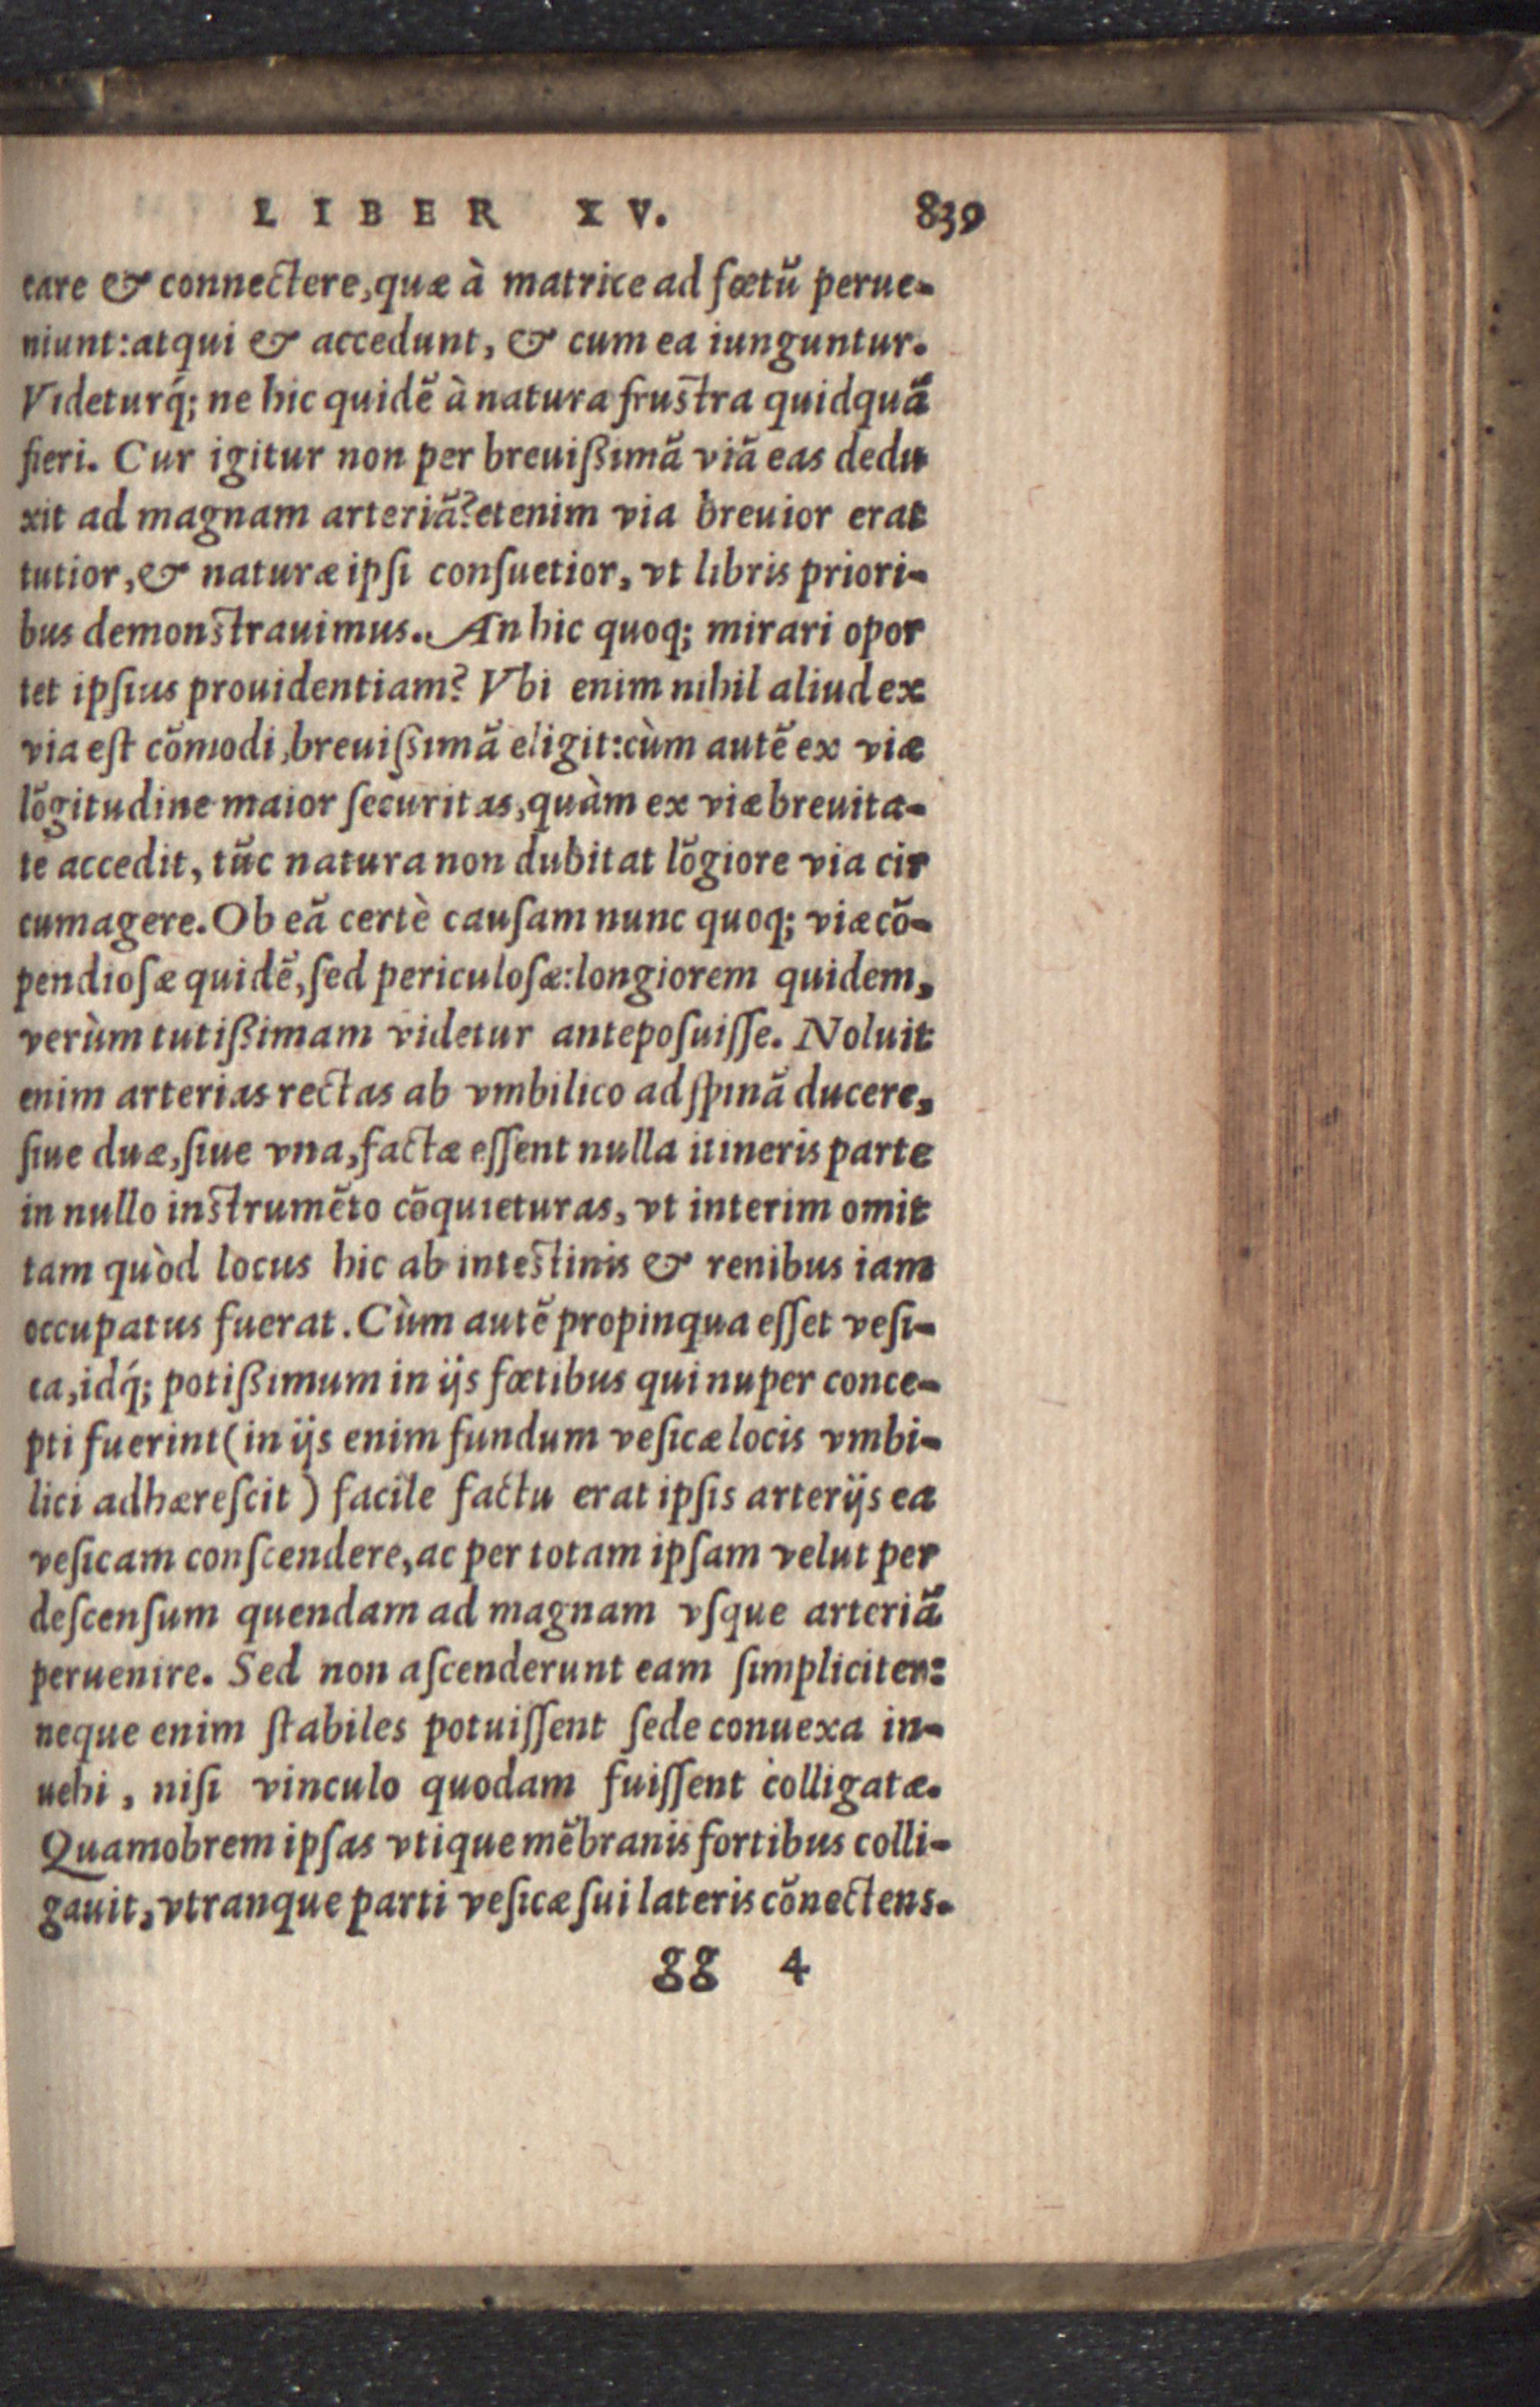 LIBER XV. 839
care & connectere, quæ à matrice ad fœtũ perue-
niunt: atqui & accedunt, & cum ea iunguntur.
Videturq́; ne hic quidẽ à natura frustra quidquã
fieri. Cur igitur non per breuißimã viã eas dedu
xit ad magnam arteriã? etenim via breuior erat
tutior, & naturæ ipſi conſuetior, vt libris priori-
bus demonstrauimus. An hic quoq; mirari opor
tet ipſius prouidentiam? Vbi enim nihil aliud ex
via eſt cõmodi, breuißimã eligit: cùm autẽ ex viæ
lõgitudine maior ſecuritas, quàm ex viæ breuita-
te accedit, tũc natura non dubitat lõgiore via cir
cumagere. Ob eã certè cauſam nunc quoq; viæ cõ-
pendioſæ quidẽ, ſed periculoſæ: longiorem quidem,
verùm tutißimam videtur antepoſuiſſe. Noluit
enim arterias rectas ab vmbilico ad ſpinã ducere,
ſiue duæ, ſiue vna, factæ eſſent nulla itineris parte
in nullo instrumẽto cõquieturas, vt interim omit
tam quòd locus hic ab intestinis & renibus iam
occupatus fuerat. Cùm autẽ propinqua eſſet veſi-
ca, idq́; potißimum in ijs fœtibus qui nuper conce-
pti fuerint (in ijs enim fundum veſicæ locis vmbi-
lici adhæreſcit) facile factu erat ipſis arterijs ea
veſicam conſcendere, ac per totam ipſam velut per
deſcenſum quendam ad magnam vſque arteriã
peruenire. Sed non aſcenderunt eam ſimpliciter:
neque enim ſtabiles potuiſſent ſede conuexa in-
uehi, niſi vinculo quodam fuiſſent colligatæ.
Quamobrem ipſas vtique mẽbranis fortibus colli-
gauit, vtranque parti veſicæ ſui lateris cõnectens.
gg 4